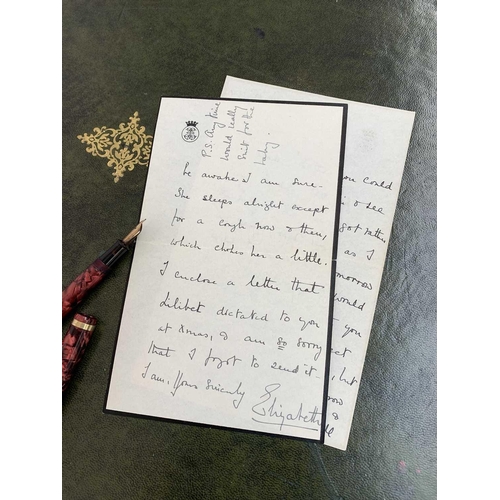 P.S. Any time
would really
suit for the
baby.
be awake I am sure -
She sleeps alright except
for a cough now & then,
which chokes her a little.
I enclose a letter that
Lilibet dictated to you
at Xmas, & am so sorry
that I forgot to send it -
I am, Yours sincerely
Elizabeth
you could
& see
got rather
as I
tomorrow
would
you
but
&